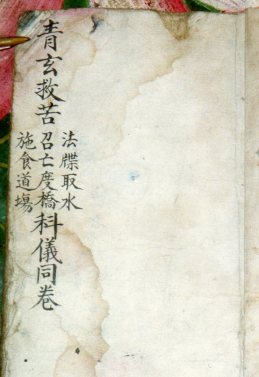 青玄救苦
法牒取水
召亡度橋
施食道場
科儀同卷